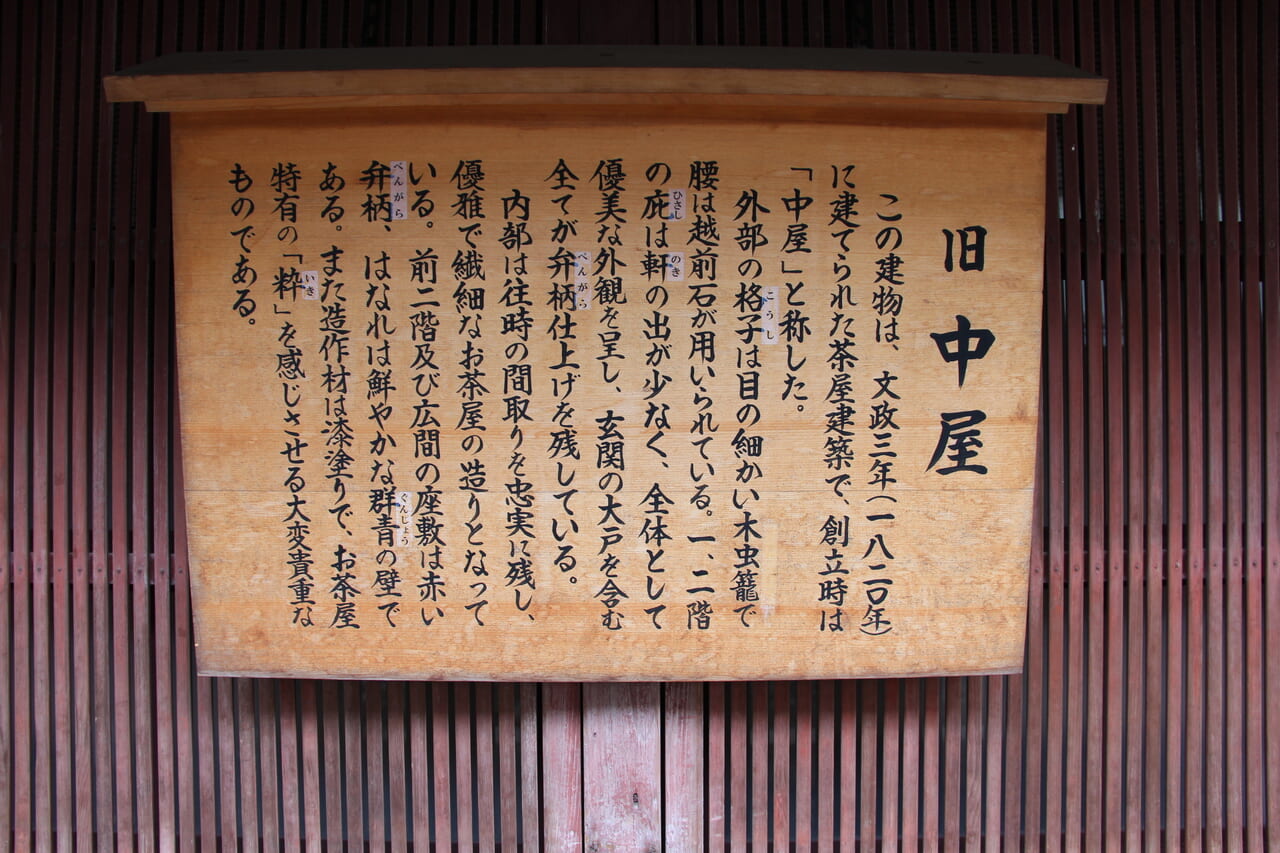 旧中屋
この建物は、文政三年(一八二〇年)
に建てられた茶屋建築で、創立時は
「中屋」と称した。
外部の格子は目の細かい木虫籠で
こうし
腰は越前石が用いられている。一、二階
の庇は軒の出が少なく、全体として
ひさし
のき
優美な外観を呈し、玄関の大戸を含む
全てが弁柄仕上げを残している。
べんがら
内部は往時の間取りを忠実に残し、
優雅で繊細なお茶屋の造りとなって
いる。前二階及び広間の座敷は赤い
弁柄、はなれは鮮やかな群青の壁で
べんがら
ぐんじょう
ある。また造作材は漆塗りで、お茶屋
特有の「粋」を感じさせる大変貴重な
いき
ものである。